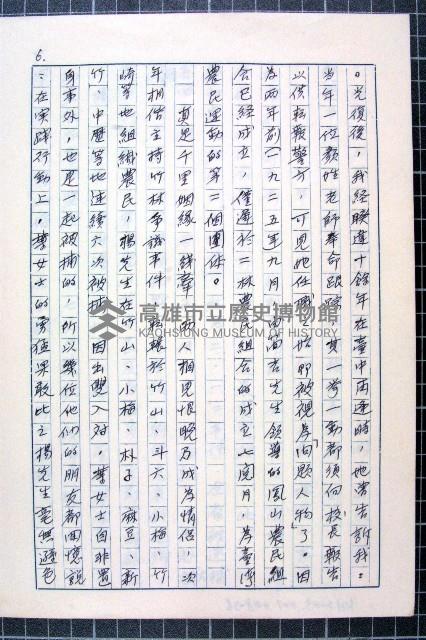 6.
。光復後，我經睽違十餘年在臺中再逢時，她嘗告訴我：
當年一位教姓老師奉命跟踪，其一舉一動都須向校長報告
以供轉報警方，可見她任職之始即被視為「問題人物」了。因
為兩年前(一九二五年)九月由簡吉先生領導的鳳山農民組
合已經成立，僅遲於二林農民組合的成立七閱月，為臺灣
農民運動的第二個團体。
真是千里姻緣一綫牽，兩人相見恨晚乃成為情侶，次
年相偕主持竹林爭議事件，輾轉於竹山、斗六、小梅、竹
崎等地組織農民，楊先生在竹山、小梅、朴子、麻豆、新
竹、中壢等地連續六次被捕，因出雙入对，葉女士自非置
身事外，也是一起被捕的，所以幾位他們的朋友都回憶說
：在実踐行動上，葉女士的勇猛果敢比之楊先生毫無遜色
高雄市立歷史博物館
KAOHSIUNG MUSEUM OF HISTORY